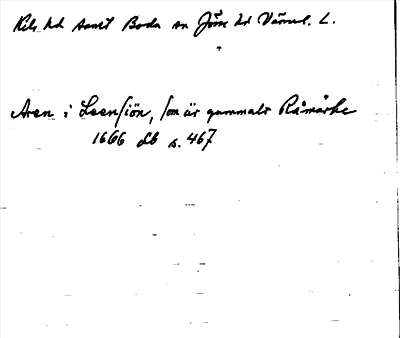 Kils hd samt Boda sn Jösse hd Värml. L.
Aren i Leensiön, som är gammalt Råmärke
1666 Lb s. 467